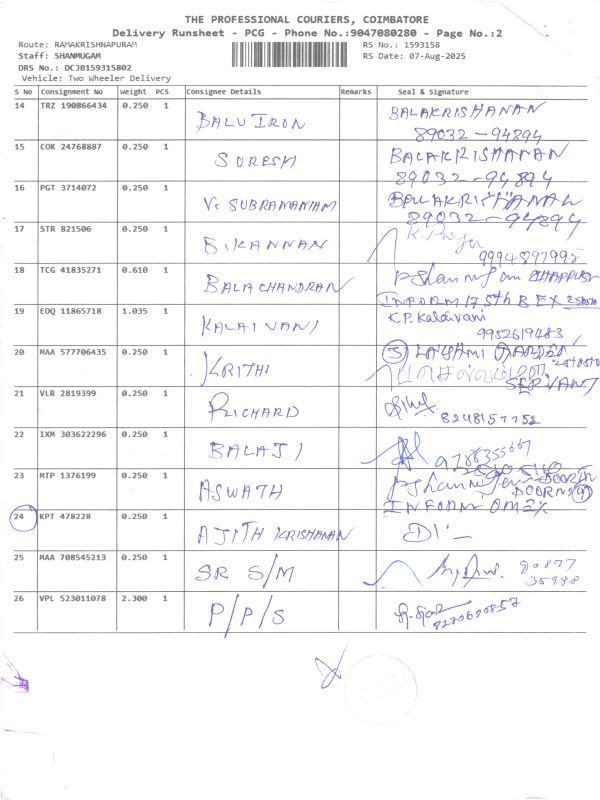 THE PROFESSIONAL COURIERS, COIMBATORE
Delivery Runsheet - PCG - Phone No.:9047080280 - Page No.:2
Route: RAMAKRISHNAPURAM
RS No.: 1593158
Staff: SHANMUGAM
RS Date: 07-Aug-2025
DRS No.: DCJB159315802
Vehicle: Two Wheeler Delivery
S No Consignment No Weight PCS Consignee Details Remarks Seal & Signature
14 TRZ 190866434 0.250 1 BALU IRON BALAKRISHANAN
89032-94894
15 COK 24768887 0.250 1 SURESH BALAKRISHANAN
89032-94894
16 PGT 3714072 0.250 1 Vc SUBRAMANIAM BALAKRISHANAN
89032-94894
17 STR 821506 0.250 1 BIKANNAN
9994897995
18 TCG 41835271 0.610 1 BALACHANDRAN
INFORM
19 EDQ 11865718 1.035 1 KALAIVANI K.P. Kaldivani
9952619483
20 MAA 577706435 0.250 1 KRITHI
SERVANT
21 VLR 2819399 0.250 1 RICHARD
8248157752
22 IXM 303622296 0.250 1 BALAJI
9788355667
23 MTP 1376199 0.250 1 ASWATH
INFORM
24 KPT 478228 0.250 1 AJITH KRISHANAN
25 MAA 708545213 0.250 1 SR S/M
26 VPL 523011078 2.300 1 P/P/S